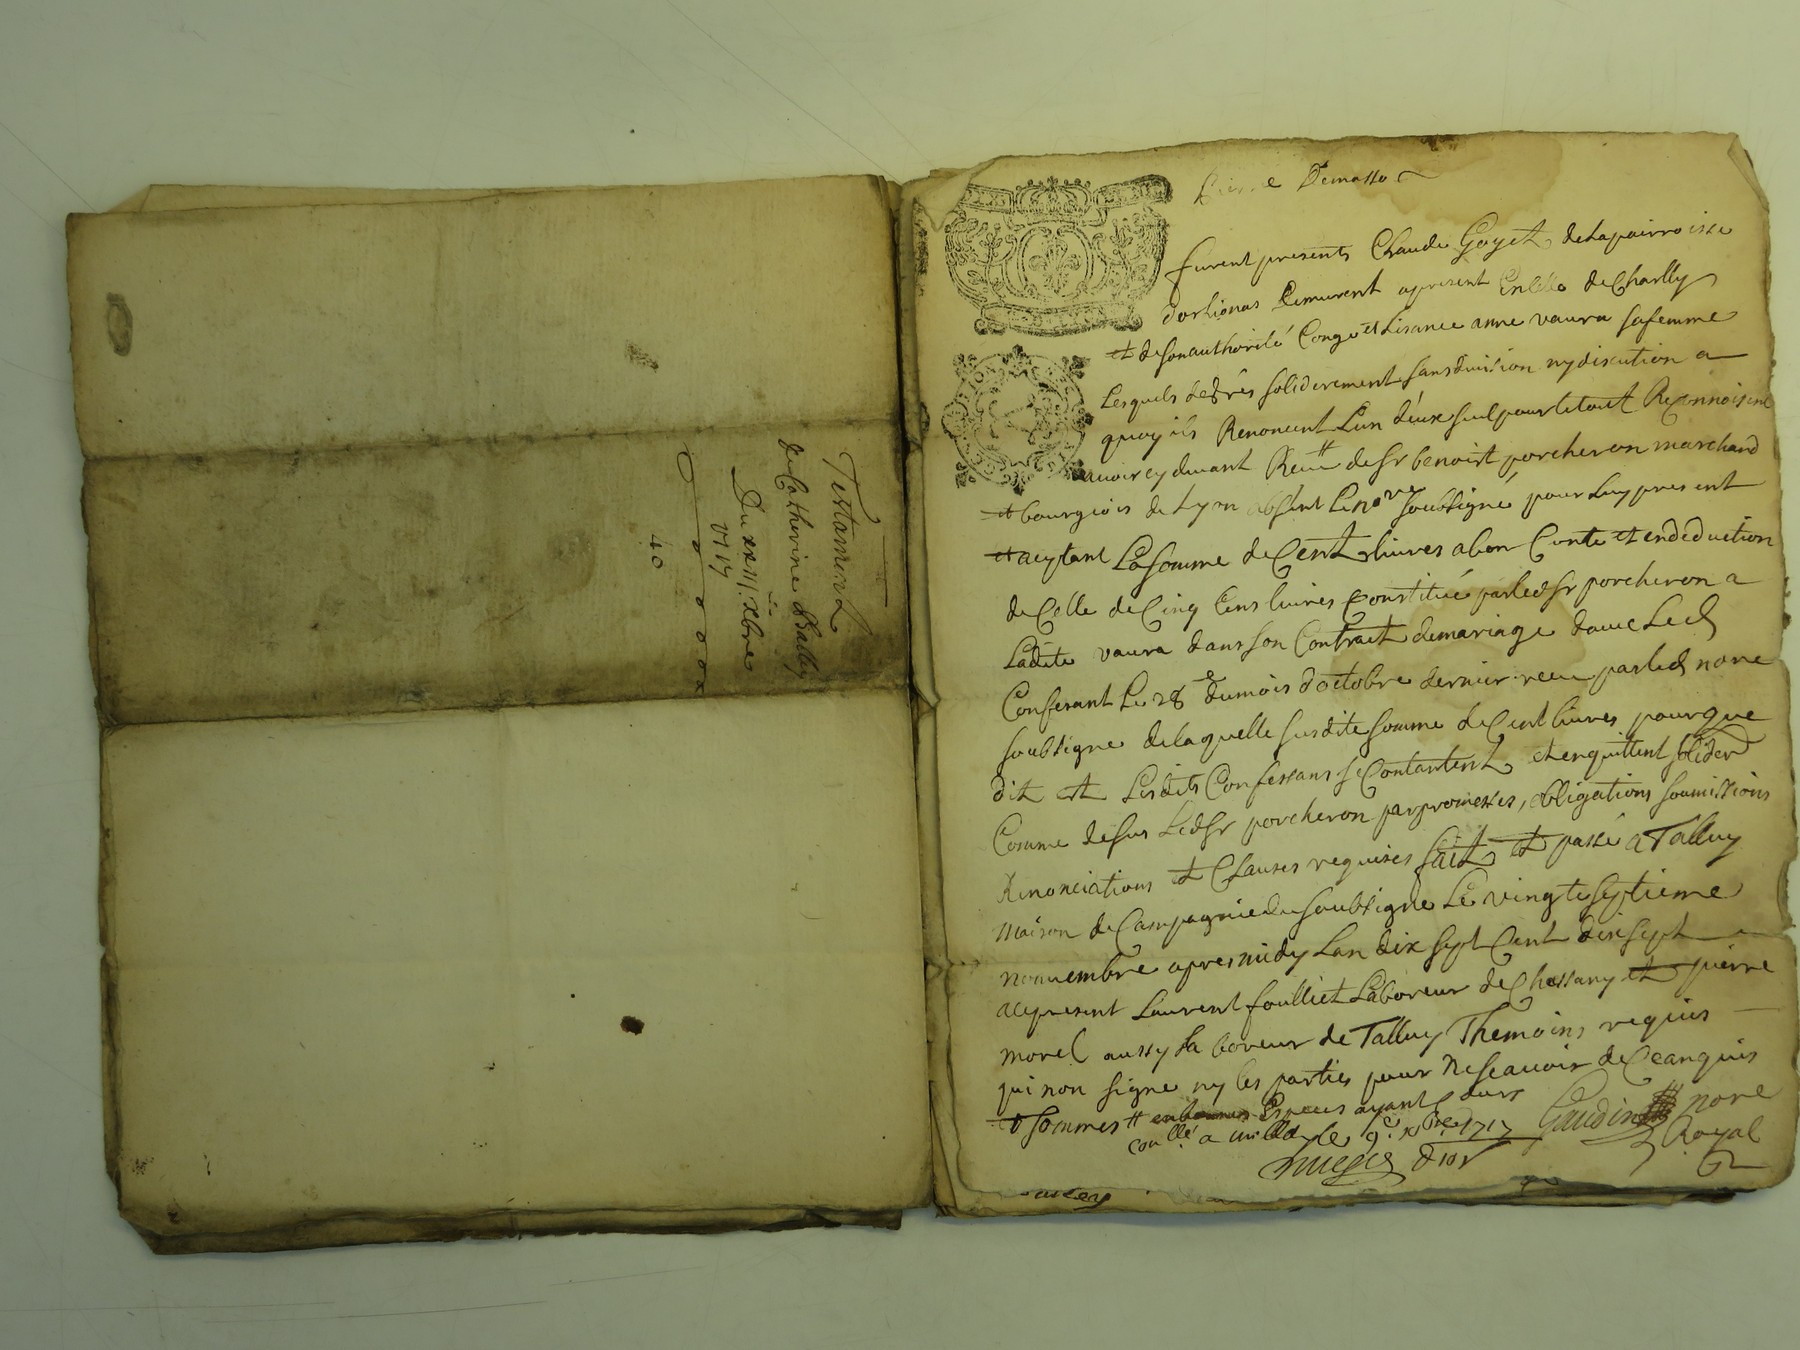 Testament
de Catherine Bally
Du xxii.e xbre
1717
40
Pierre Demasso
furent presents Claude Goyet de la pairroisse
d'orlienas Demurent apresent En Celle de Charlly
et de son authorité Congé et Lisance anne vaura sa femme
Lesquels de grés soliderement sans division ny discution a
quoy ils Renoncent L'un d'eux seul pour le tout Reconnoissent
avoir cy devant Receu de sr benoist porcheron marchand
et bourgiois de Lyon absent Le no.re soubsigné pour Luy present
et aceptant La somme de Cent livres a bon Conte et en deduction
de Celle de Cinq Cens livres Constitué par led sr porcheron a
Ladite vaura dans son Contract de mariage d'avec Led
Confesant Le 28e du mois d'octobre dernier receu par led nore
soubsigne de laquelle susdite somme de Cent livres pour que
dit est Lesdits Confessans se Contantent et en quittent solider
Comme desus Led sr porcheron par promesses, obligations soumissions
Renonciations et Clauses requises fait et passé a Talluy
maison de Campagnie du soubsigne Le vingt septieme
novembre apres midy Lan dix sept Cent dix sept
acepresent Laurent foulliet Laboreur de Chassany et pierre
morel aussy La boreur de Talluy Themoins requis
qui non signe ny les parties pour ne scavoir de Ce enquis
et sommes
Gaudin nore
Royal
con.llé a mill le 9.e xbre 1717